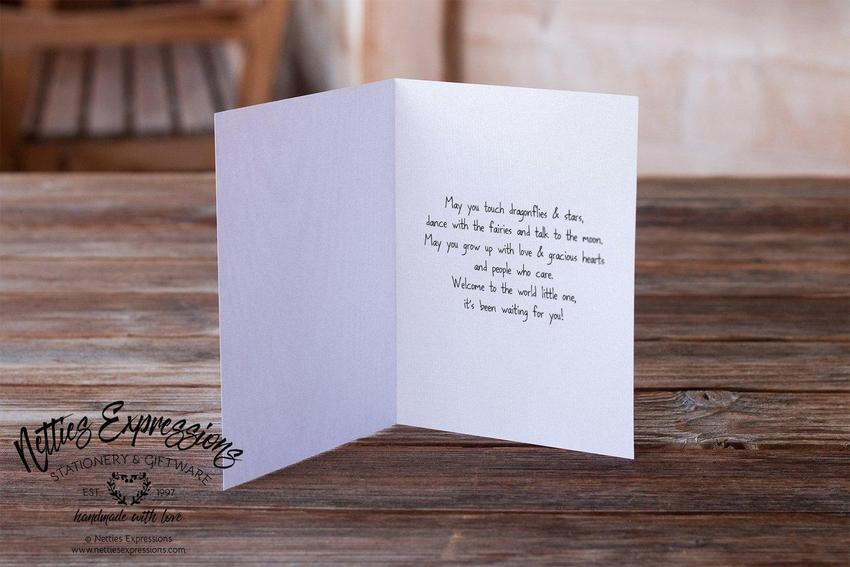 May you touch dragonflies & stars,
dance with the fairies and talk to the moon.
May you grow up with love & gracious hearts
and people who care.
Welcome to the world little one,
it's been waiting for you!
Netties Expressions
STATIONERY & GIFTWARE
EST 1997
handmade with love
© Netties Expressions
www.nettiesexpressions.com